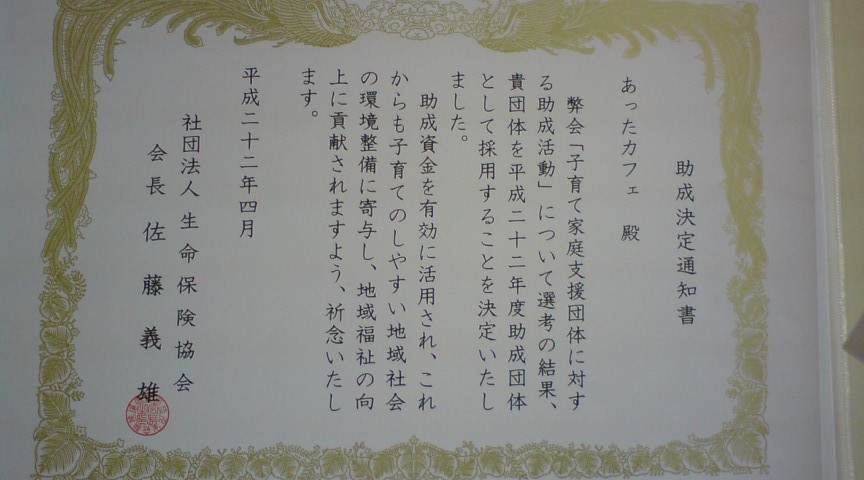 助成決定通知書
あったカフェ 殿
弊会「子育て家庭支援団体に対す
る助成活動」について選考の結果、
貴団体を平成二十二年度助成団体
として採用することを決定いたし
ました。
助成資金を有効に活用され、これ
からも子育てのしやすい地域社会
の環境整備に寄与し、地域福祉の向
上に貢献されますよう、祈念いたし
ます。
平成二十二年四月
社団法人 生命保険協会
会長 佐藤義雄